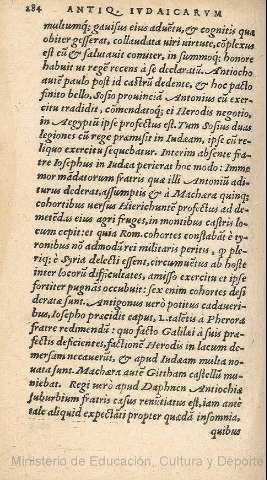 284 ANTIQ. IVDAICARVM
multumq; gauisus eius aduẽtu, & cognitis quæ
obiter gesserat, collaudata uiri uirtute, cõplexus
est eũ & salutauit comiter, in summoq; honore
habuit ut regẽ recens à se declaratũ. Antiocho
autẽ paulo post id castrũ dedente, & hoc pacto
finito bello, Sosio prouincia Antonius cũ exer-
citu tradidit, cõmendatoq; ei Herodis negotio,
in Aegyptũ ipse profectus est. Tum Sosius duas
legiones cũ rege præmisit in Iudæam, ipse cũ re-
liquo exercitu sequebatur. Interim absente fra-
tre Iosephus in Iudæa perierat hoc modo: Imme
mor mãdatorum fratris quæ illi Antonij adi-
turus dederat, assumptis & à Machæra quinq;
cohortibus uersus Hierichuntẽ profectus ad de-
metẽdas eius agri fruges, in montibus castris lo-
cum cepit: et quia Rom. cohortes constabãt è ty-
ronibus nõ admodũ rei militaris peritis, q ple-
riq; è Syria delecti essent, circumuẽtus ab hoste
inter locorũ difficultates, amisso exercitu et ipse
fortiter pugnãs occubuit: sex enim cohortes desi
deratæ sunt. Antigonus uerò potitus cadaueri-
bus, Iosepho præcidit caput, L. talẽtis à Pherora
fratre redimendũ: quo facto Galilæi à suis præ-
fectis deficientes, factionẽ Herodis in lacum de-
mersam necauerũt, & apud Iudæam multa no-
uata sunt. Machæra autẽ Gittham castellũ mu-
niebat. Regi uerò apud Daphnen Antiochiæ
suburbium fratris casus renũtiatus est, iam ante
tale aliquid expectãti propter quædã insomnia,
quibus
Ministerio de Educación, Cultura y Deporte